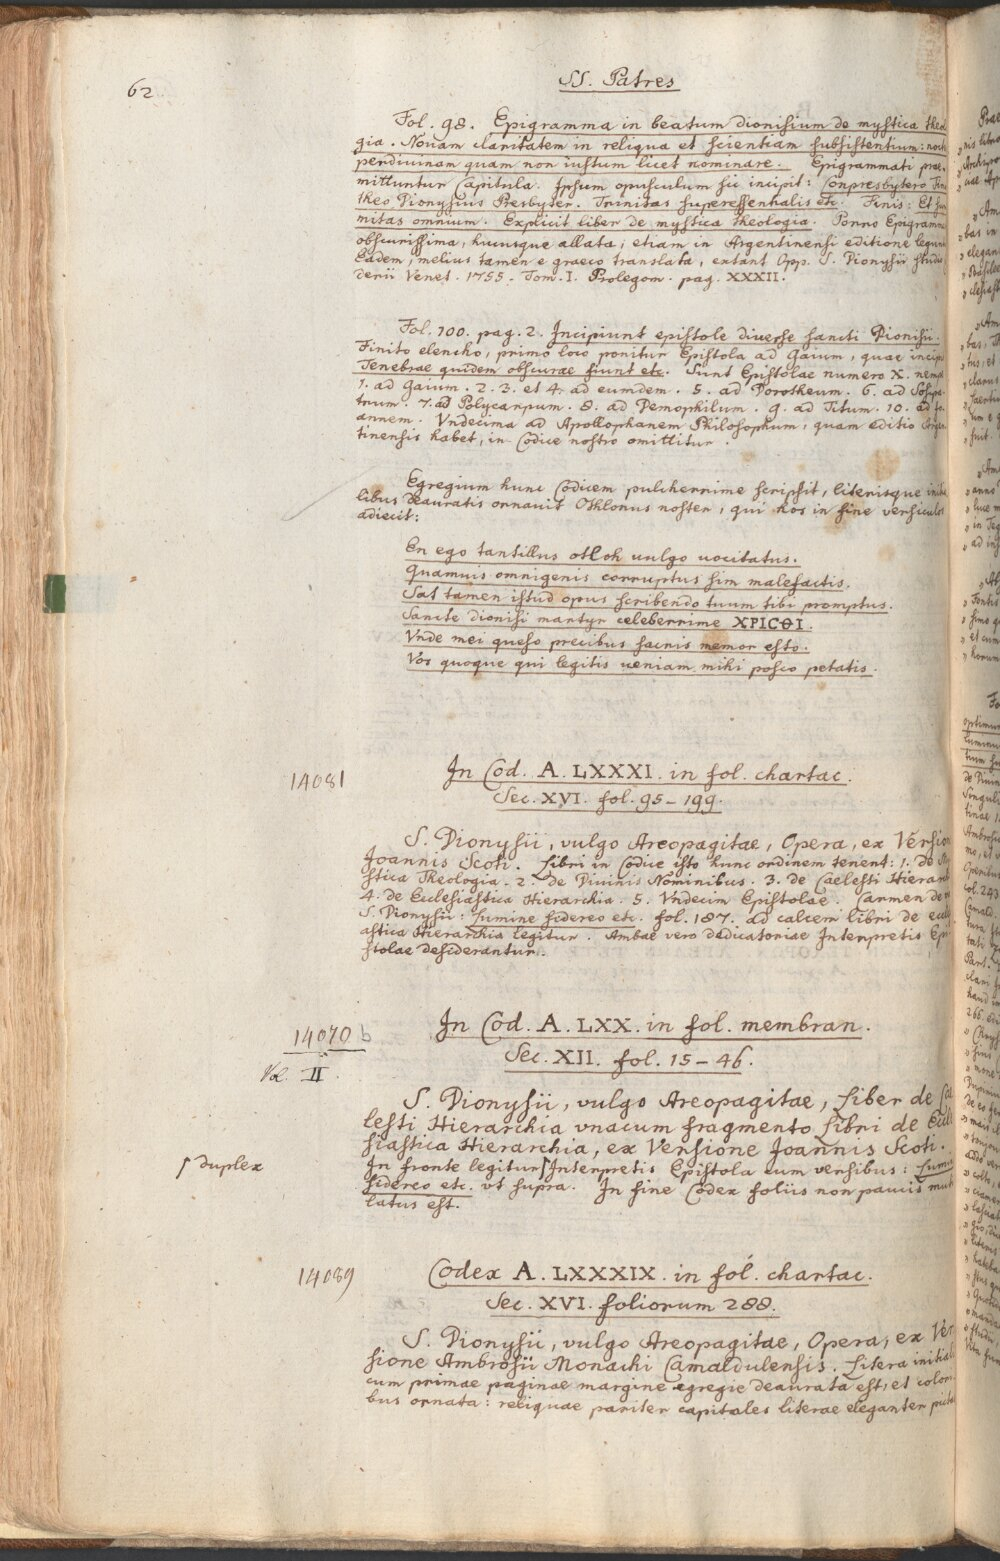 62
SS. Patres
Fol. 98. Epigramma in beatum dionisium de mystica theo
gia. Nouam claritatem in reliqua et scientiam subsistentium: noct
perdiuinam quam non iustum licet nominare. Epigrammati prae-
mittuntur Capitula. Ipsum opusculum sic incipit: Conpresbytero Timo
theo Dionysius Presbyter. Trinitas superessentialis etc. Finis: Et sum
mitas omnium. Explicit liber de mystica theologia. Porro Epigramma
obscurissima, hucusque allata, etiam in Argentinensi editione legun
Eadem, melius tamen e graeco translata, extant Opp. S. Dionysii studio
derii Venet. 1755. Tom. I. Prolegom. pag. XXXII.
Fol. 100. pag. 2. Incipiunt epistole diuerse sancti Dionisii.
Finito elencho, primo loco ponitur Epistola ad Gaium, quae incipi
Tenebrae quidem obscurae fiunt etc. Sunt Epistolae numero X. nemp
1. ad Gaium. 2. 3. et 4. ad eumdem. 5. ad Dorotheum. 6. ad Sosipa
trum. 7. ad Polycarpum. 8. ad Demophilum. 9. ad Titum. 10. ad Jo-
annem. Vndecima ad Apollophanem Philosophum, quam editio Argen
tinensis habet, in Codice nostro omittitur.
Egregium hunc Codicem pulcherrime scripsit, literisque initia
libus deauratis ornauit Othlonus noster, qui hos in fine versiculos
adiecit:
En ego tantillus otloh uulgo uocitatus.
Quamuis omnigenis corruptus sim malefactis.
Sat tamen istud opus scribendo tuum tibi promptus.
Sancte dionisi martyr celeberrime XPICΘI.
Vnde mei queso precibus sacris memor esto.
Vos quoque qui legitis ueniam mihi posco petatis.
14081
In Cod. A. LXXXI. in fol. chartac.
Sec. XVI. fol. 95-199.
S. Dionysii, vulgo Areopagitae, Opera, ex Version
Joannis Scoti. Libri in Codice isto hunc ordinem tenent: 1. de My
stica Theologia. 2. de Diuinis Nominibus. 3. de Caelesti Hierarch
4. de Ecclesiastica Hierarchia. 5. Vndecim Epistolae. Carmen de
S. Dionysii: Lumine sidereo etc. fol. 187. ad calcem libri de eccl
astica Hierarchia legitur. Ambae vero dedicatoriae Interpretis Epi
stolae desiderantur.
14070 b
Vol. II
In Cod. A. LXX. in fol. membran.
Sec. XII. fol. 15-46.
S. Dionysii, vulgo Areopagitae, Liber de Ca
lesti Hierarchia vnacum fragmento Libri de Eccl
siastica Hierarchia, ex Versione Joannis Scoti.
⌠ duplex
In fronte legitur ⌠ Interpretis Epistola cum versibus: Lumi
sidereo etc. vt supra. In fine Codex foliis non paucis muti
latus est.
14089
Codex A. LXXXIX. in fol. chartac.
Sec. XVI. foliorum 288.
S. Dionysii, vulgo Areopagitae, Opera, ex Ver
sione Ambrosii Monachi Camaldulensis. Litera initial
cum primae paginae margine egregie deaurata est, et colori
bus ornata: reliquae pariter capitales literae eleganter picta